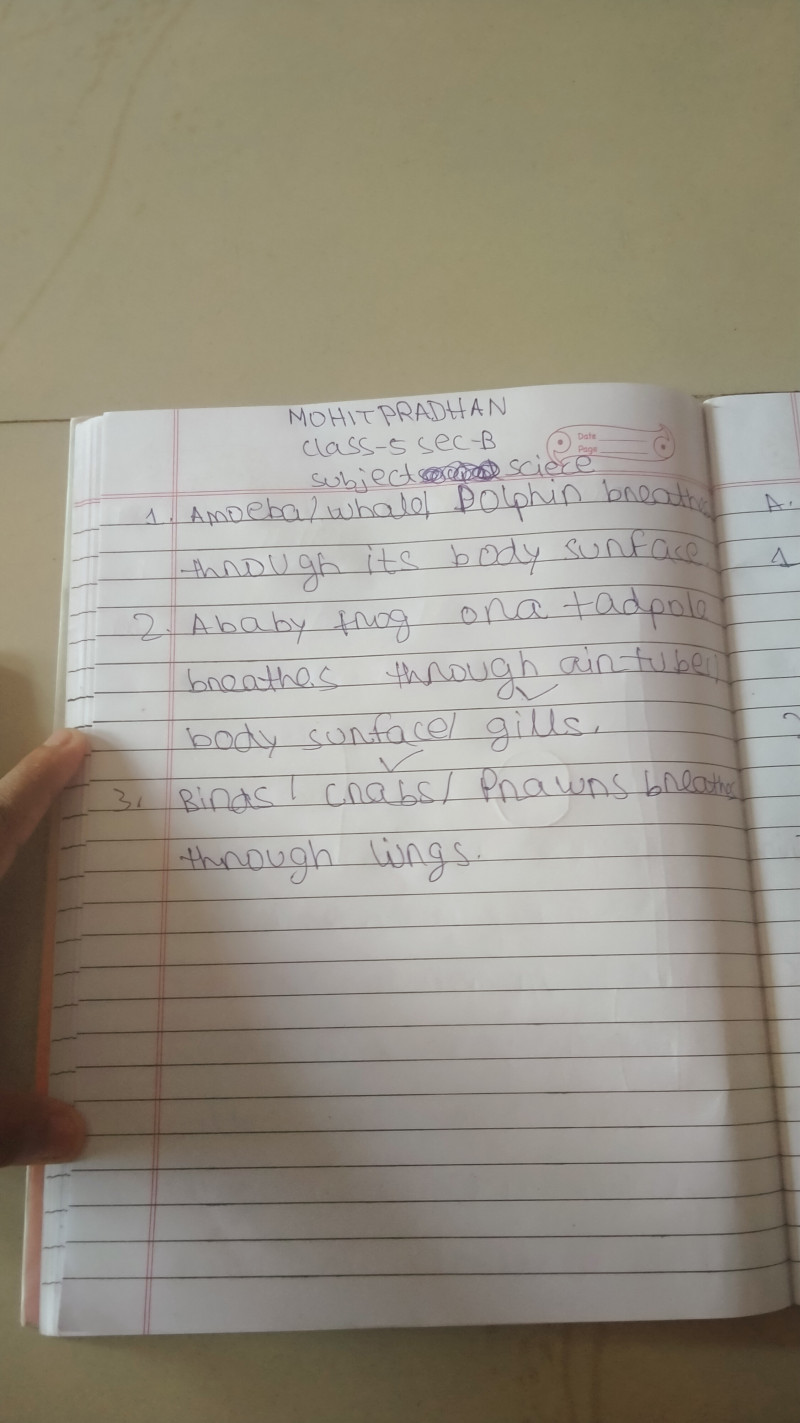 MOHIT PRADHAN
class-5 sec-B
Date
Page
subject sciece
1. Amoeba/whale/ Dolphin breathe
A.
through its body surface.
1
2. A baby frog or a tadpole
breathes through air tube/
body surface/ gills.
3. Birds/ Crabs/ Prawns breathe
through lungs.